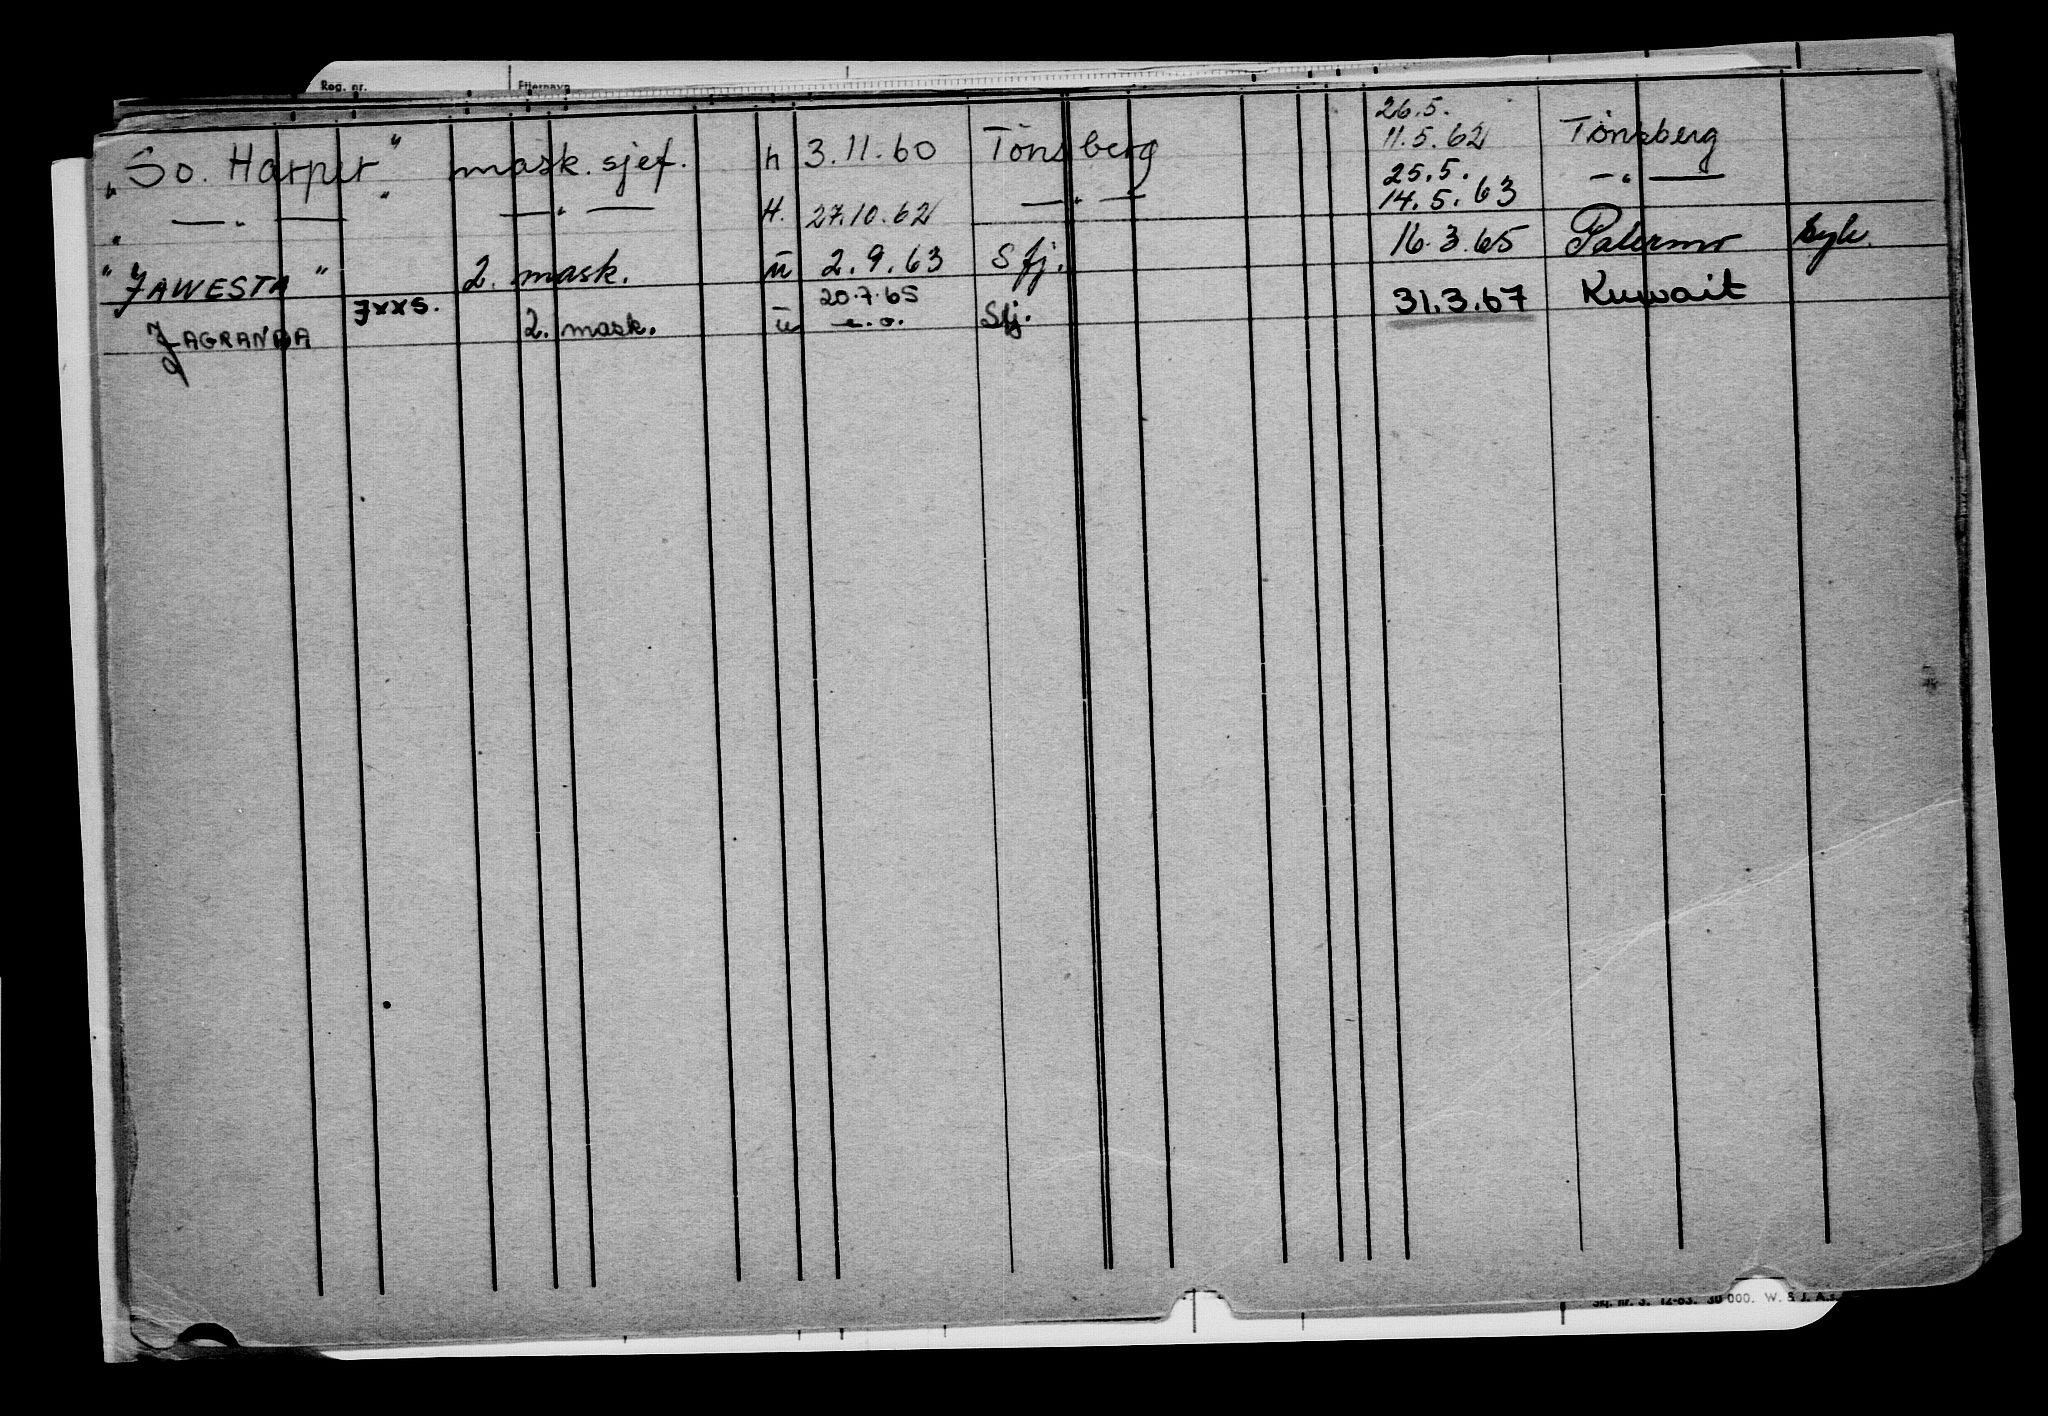 Reg. nr. Efternavn
26.5.
"So. Harper" mask. sjef. h 3.11.60 Tönsberg 11.5.62 Tönsberg
25.5.
" — " — " — " — H. 27.10.62 — " — 14.5.63 — " —
"JAWESTA" 2. mask. ü 2.9.63 Sfj. 16.3.65 Palermo syk.
20.7.65
JAGRANDA JXXS. 2. mask. ü e.o. Sfj. 31.3.67 Kuwait
Sq. nr. 3. 12-63. 30 000. W. S J. A.s.